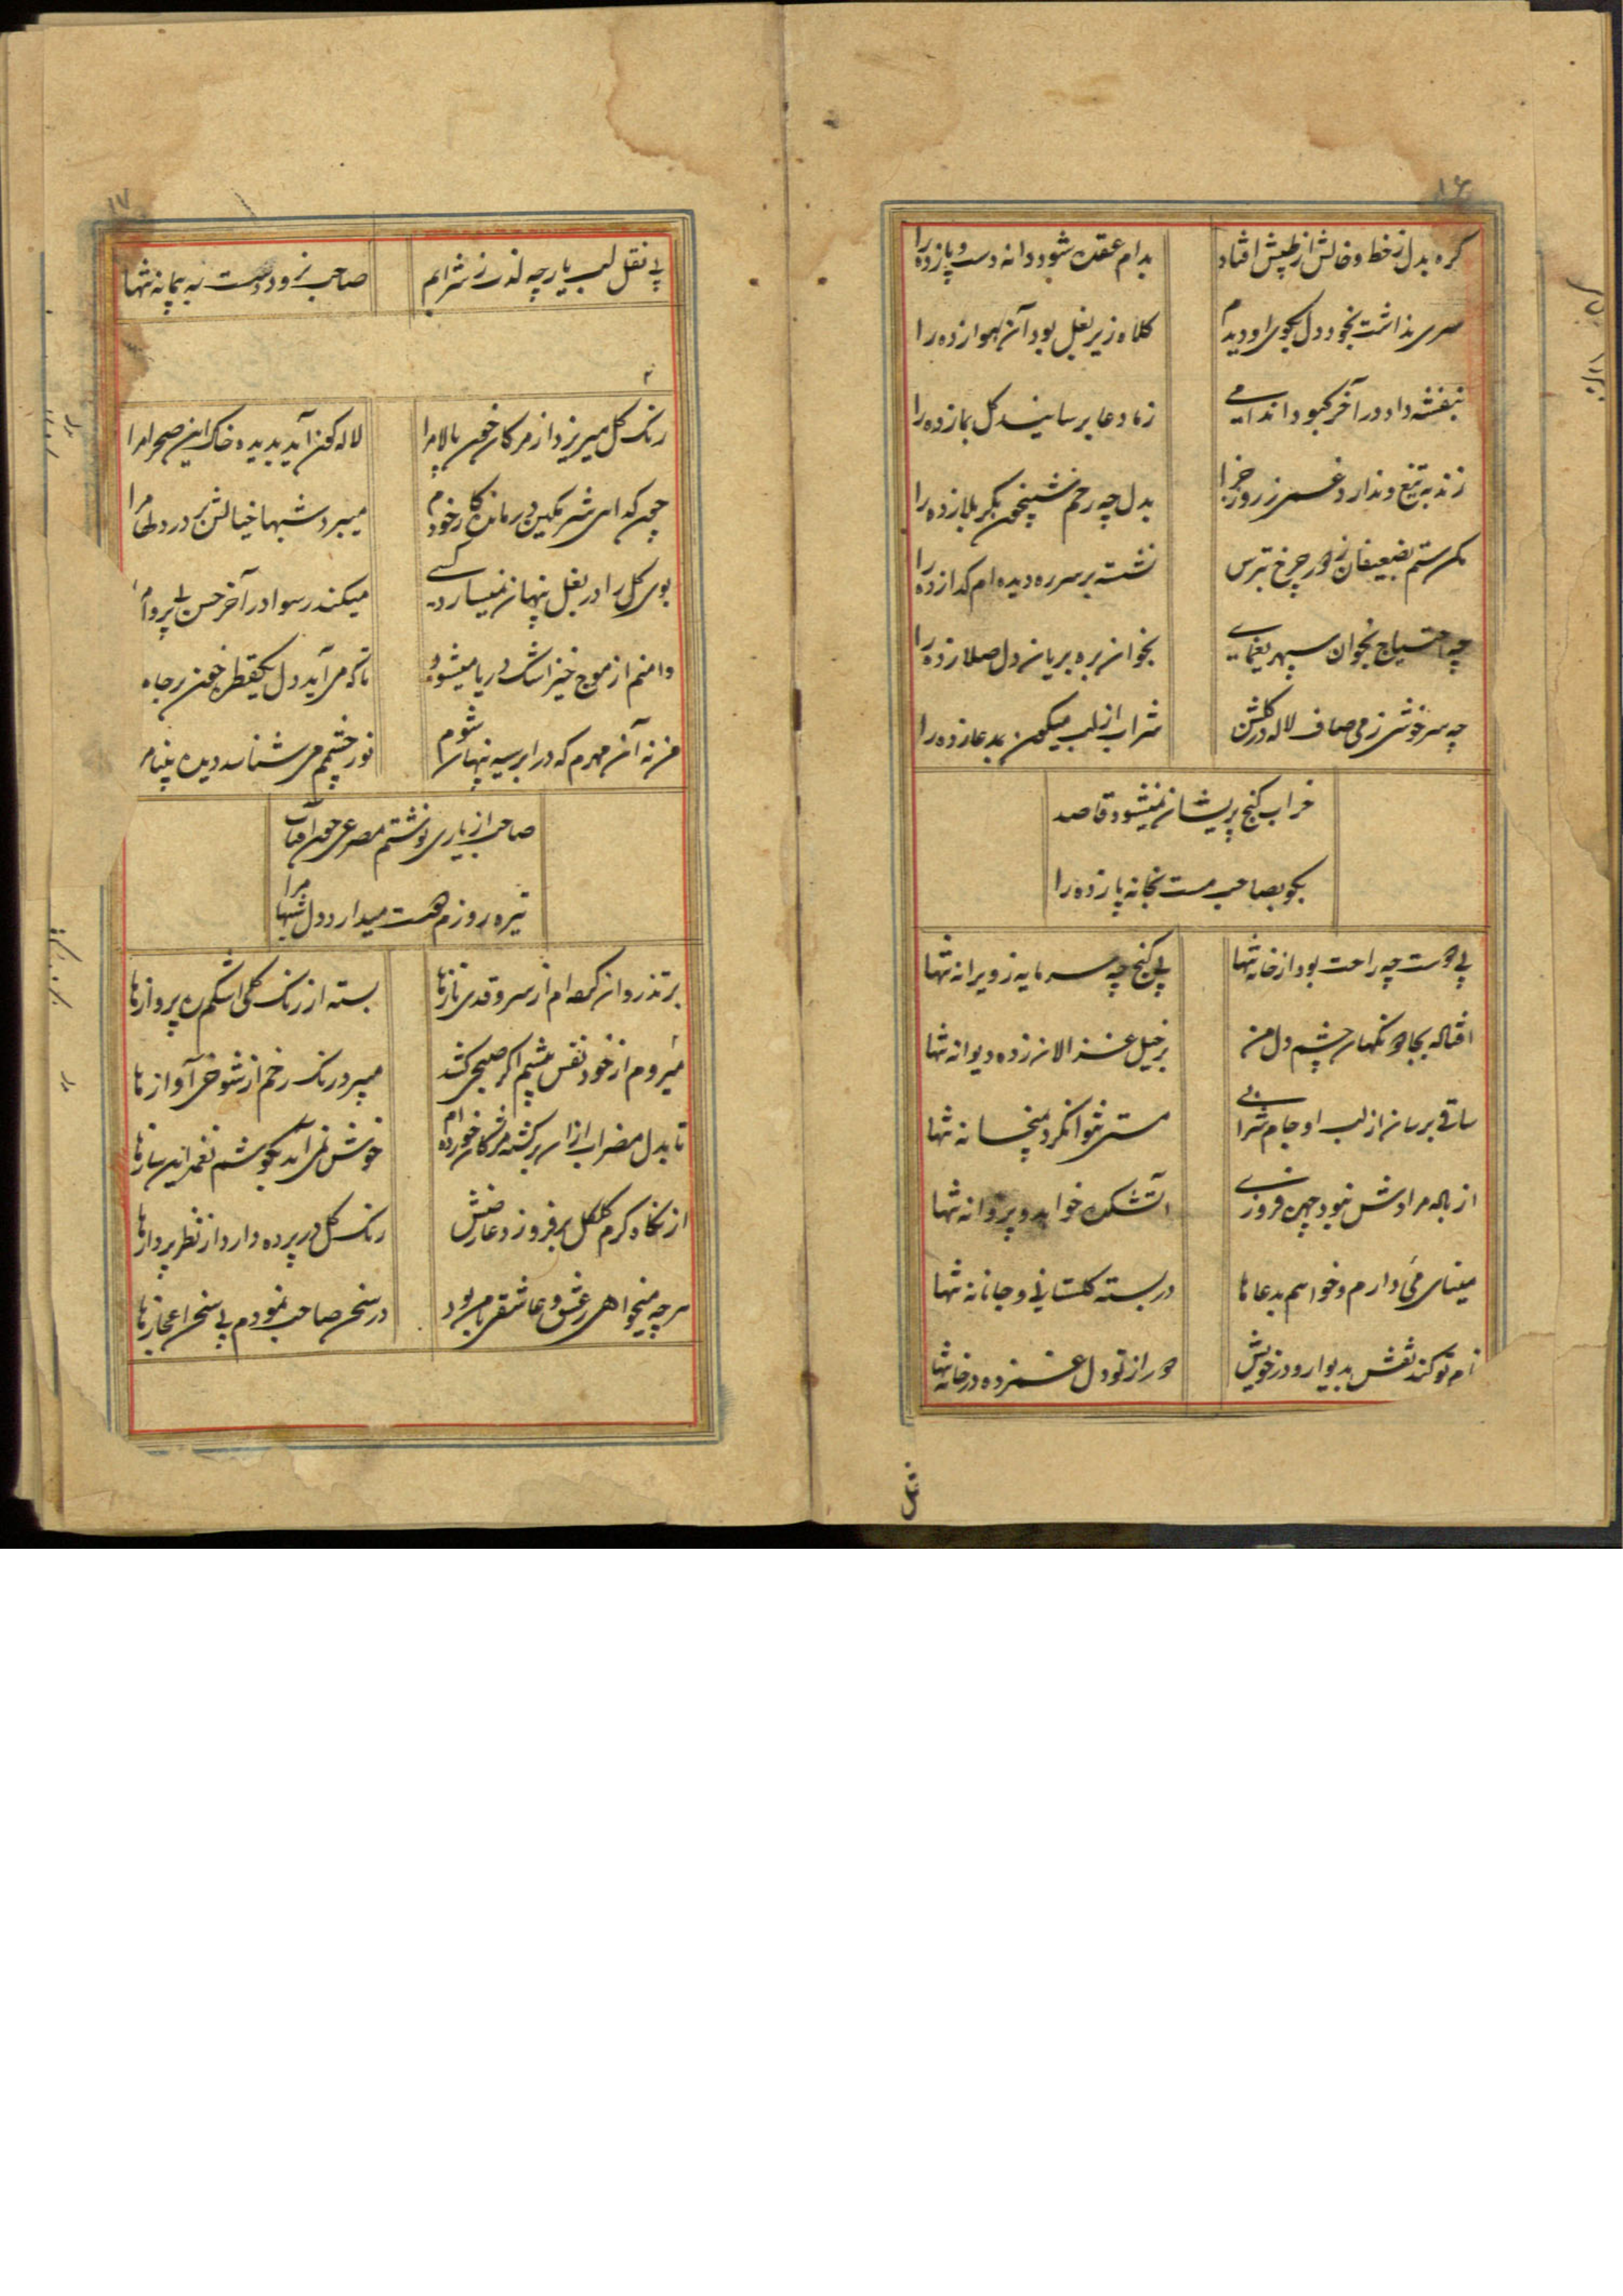 ۱۶
گره بدل ز خط و خالش از طپش افتاد
بدام عقده شود دانه دست و پا زده را
سری نداشت بخود دل بکوی او دیدم
کلاه زیر بغل بود آن هوا زده را
بنفشه داد در آخر کبود اندامی
ز ما دعا برسانید گل بما زده را
زند به تیغ و ندارد غمی ز روز جزا
بدل چه رحم شبیخون بکربلا زده را
مکن ستم بضعیفان ز دور چرخ بترس
نشسته بر سر ره دیده ام گدا زده را
چه احتیاج بخوان سپهر یغمایی
بخوان بره بریان دل صلا زده را
چه سرخوشی ز می صاف لاله در گلشن
شراب از لب میگون مدعا زده را
خراب کنج پریشان نمیشود قاصد
بگو بصاحب مست بخانه پا زده را
بی دوست چه راحت بود از خانه تنها
بی گنج چه سرمایه ز ویرانه تنها
افتاله بجادو نگهان چشم دل من
بر خیل غزالان زده دیوانه تنها
ساقی برسان از لب او جام شرابی
مستی نتوان کرد بمیخانه تنها
از باله مرادش نبود چهره فروزی
آتشکده خواهد و پروانه تنها
مینای می دارم و خواهم بدعاها
در بسته گلستانی و جانانه تنها
نام تو کند نقش بدیوار و در خویش
دور از تو دل غمزده در خانه تنها
۱۷
بی نقل لب یار چه لذت ز شرابم
صاحب نرود دست به پیمانه تنها
رنگ گل میریزد از مژگان خون پالا مرا
لاله گون آید بدیده خاک این صحرا مرا
چون که ای شرمگین درمانده کار خودم
میبرد شبها خیالش بر در دلها مرا
بوی گل را در بغل پنهان نمیسازد کسی
میکند رسوا در آخر حسن بی پروا
دامنم از موج خیز اشک دریا میشود
تا که می آید دل یکقطره خون بر جا
من نه آن مهرم که در ابر سیه پنهان شوم
نور چشمم می شناسد دیده بینا
صاحب از یاری نوشتم مصرعی چون آفتاب
تیره روزم هست میدارد دل شبها مرا
بر تذروان کرده ام از سرو قدی نازها
بسته از رنگ گلی اشکم ره پروازها
میروم از خود نفس پیشم اگر صبحی کشد
میپرد رنگ رخم از شوخی آوازها
تا بدل مضراب از آن برگشته مژگان خورده ام
خوش نمی آید بگوشم نغمه این سازها
از نگاه گرم گلگل برفروزد عارضش
رنگ گل در پرده دارد از نظر پروازها
هر چه میخواهی ز عشق و عاشقی با من بود
در سخن صاحب نمودم بی سخن اعجازها